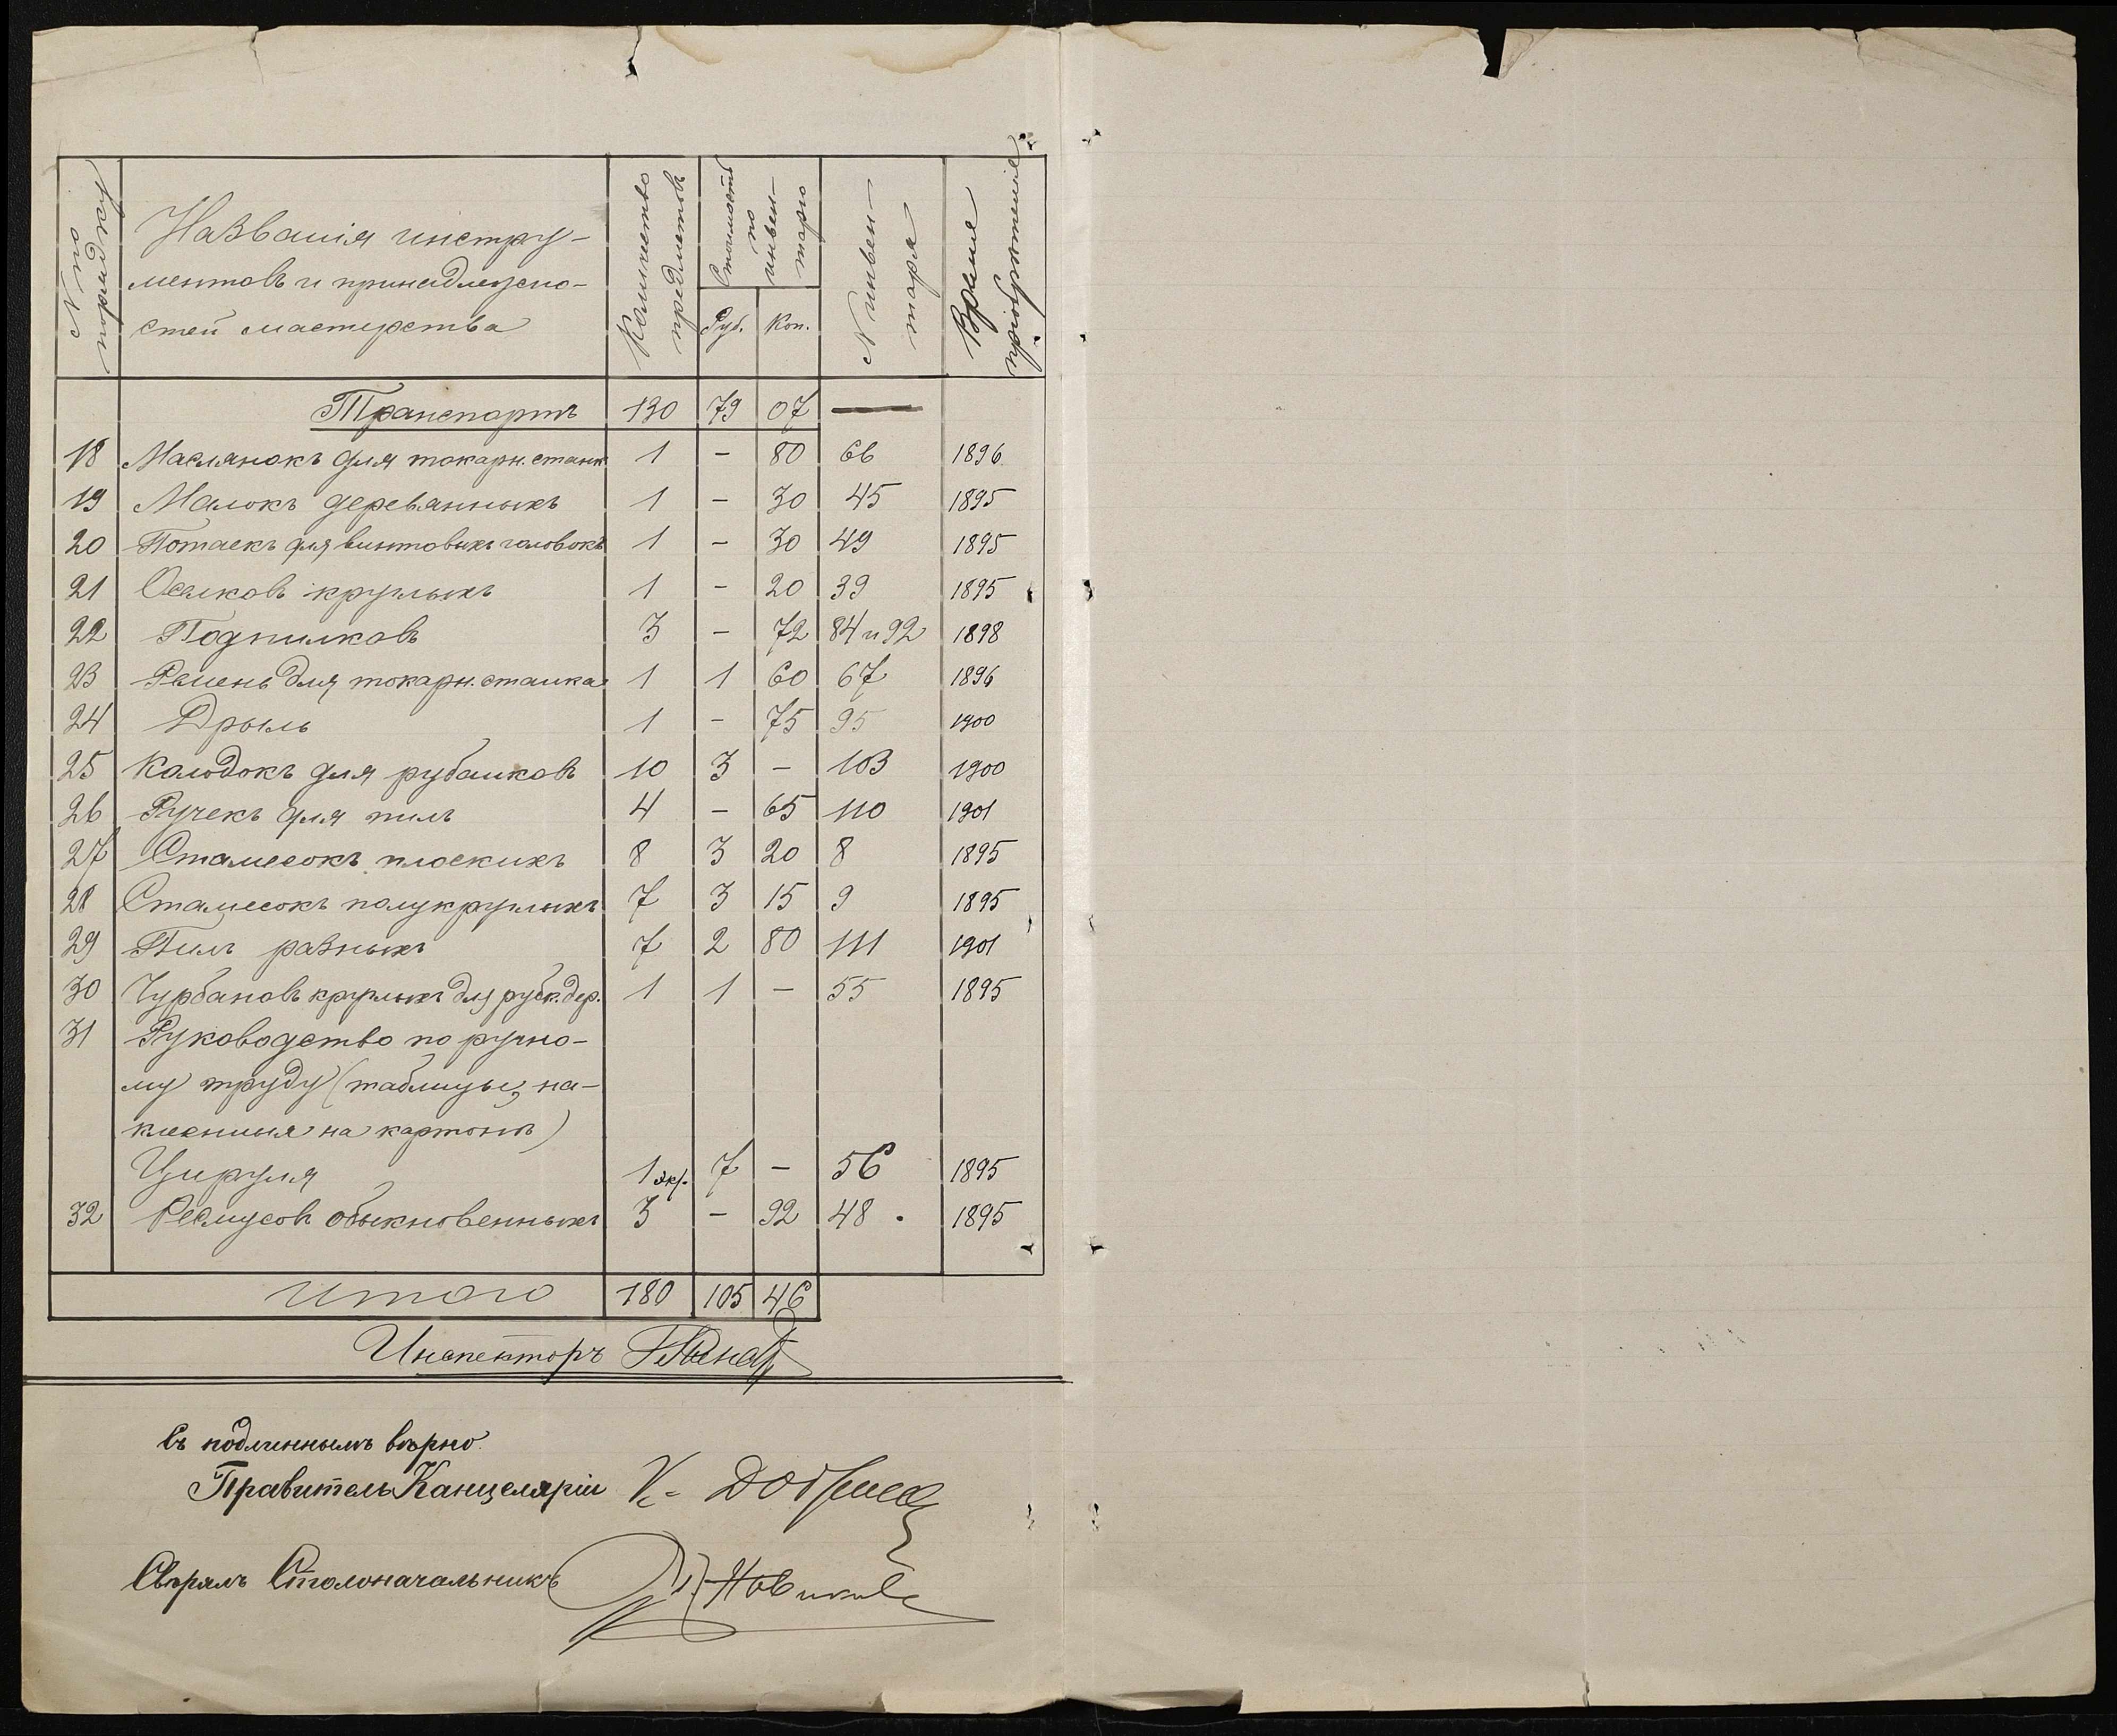 № по порядку
Названія инстру-
ментовъ и принадлежно-
стей мастерства
Количество предметовъ
Стоимость по инвен-тарю
Руб. Коп.
№ инвен-таря
Время пріобрѣтенія
Транспортъ 130 79 07 —
18 Маслянокъ для токарн. станк 1 - 80 66 1896
19 Малокъ деревянныхъ 1 - 30 45 1895
20 Потаекъ для винтовыхъ головокъ 1 - 30 49 1895
21 Оселковъ круглыхъ 1 - 20 39 1895
22 Подпилковъ 3 - 72 84 и 92 1898
23 Ремень для токарн. станка 1 1 60 67 1896
24 Дрыль 1 - 75 95 1900
25 Колодокъ для рубанковъ 10 3 - 103 1900
26 Ручекъ для пилъ 4 - 65 110 1901
27 Стамесокъ плоскихъ 8 3 20 8 1895
28 Стамесокъ полукруглыхъ 7 3 15 9 1895
29 Пилъ разныхъ 7 2 80 111 1901
30 Чурбановъ круглыхъ для рубк. дер. 1 1 - 55 1895
31 Руководство по ручно-
му труду (таблицы, на-
клеенныя на картонъ)
Цируля 1 экз. 7 - 56 1895
32 Рейсмусовъ обыкновенныхъ 3 - 92 48 . 1895
Итого 180 105 46
Инспекторъ
Съ подлиннымъ вѣрно
Правитель Канцеляріи К.
Свѣрялъ Столоначальникъ Новиковъ